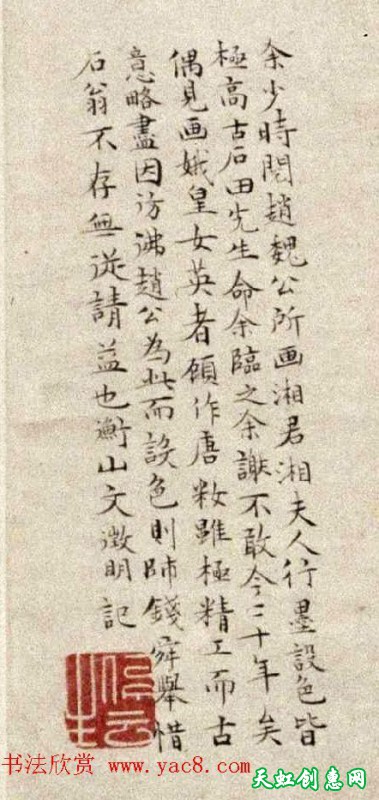 余少時閱趙魏公所画湘君湘夫人行墨設色皆
極高古石田先生命余臨之余謝不敢今二十年矣
偶見画娥皇女英者顧作唐粧雖極精工而古
意略盡因訪沸趙公為此而設色則師錢舜舉惜
石翁不存無從請益也衡山文徵明記
停雲
书法欣赏 www.yac8.com
天虹创意网